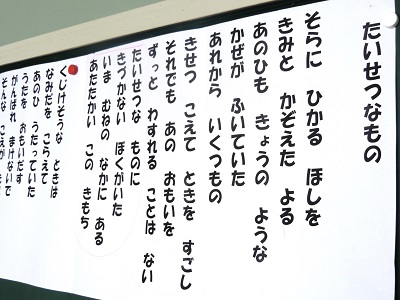 たいせつなもの
そらに ひかる ほしを
きみと かぞえた よる
あのひも きょうの ような
かぜが ふいていた
あれから いくつもの
きせつ こえて ときを すごし
それでも あの おもいを
ずっと わすれる ことは ない
たいせつな ものに
きづかない ぼくがいた
いま むねの なかに ある
あたたかい この きもち
くじけそうな ときは
なみだを こらえて
あのひ うたっていた
うたを おもいだす
がんばれ まけないで
そんな こえが